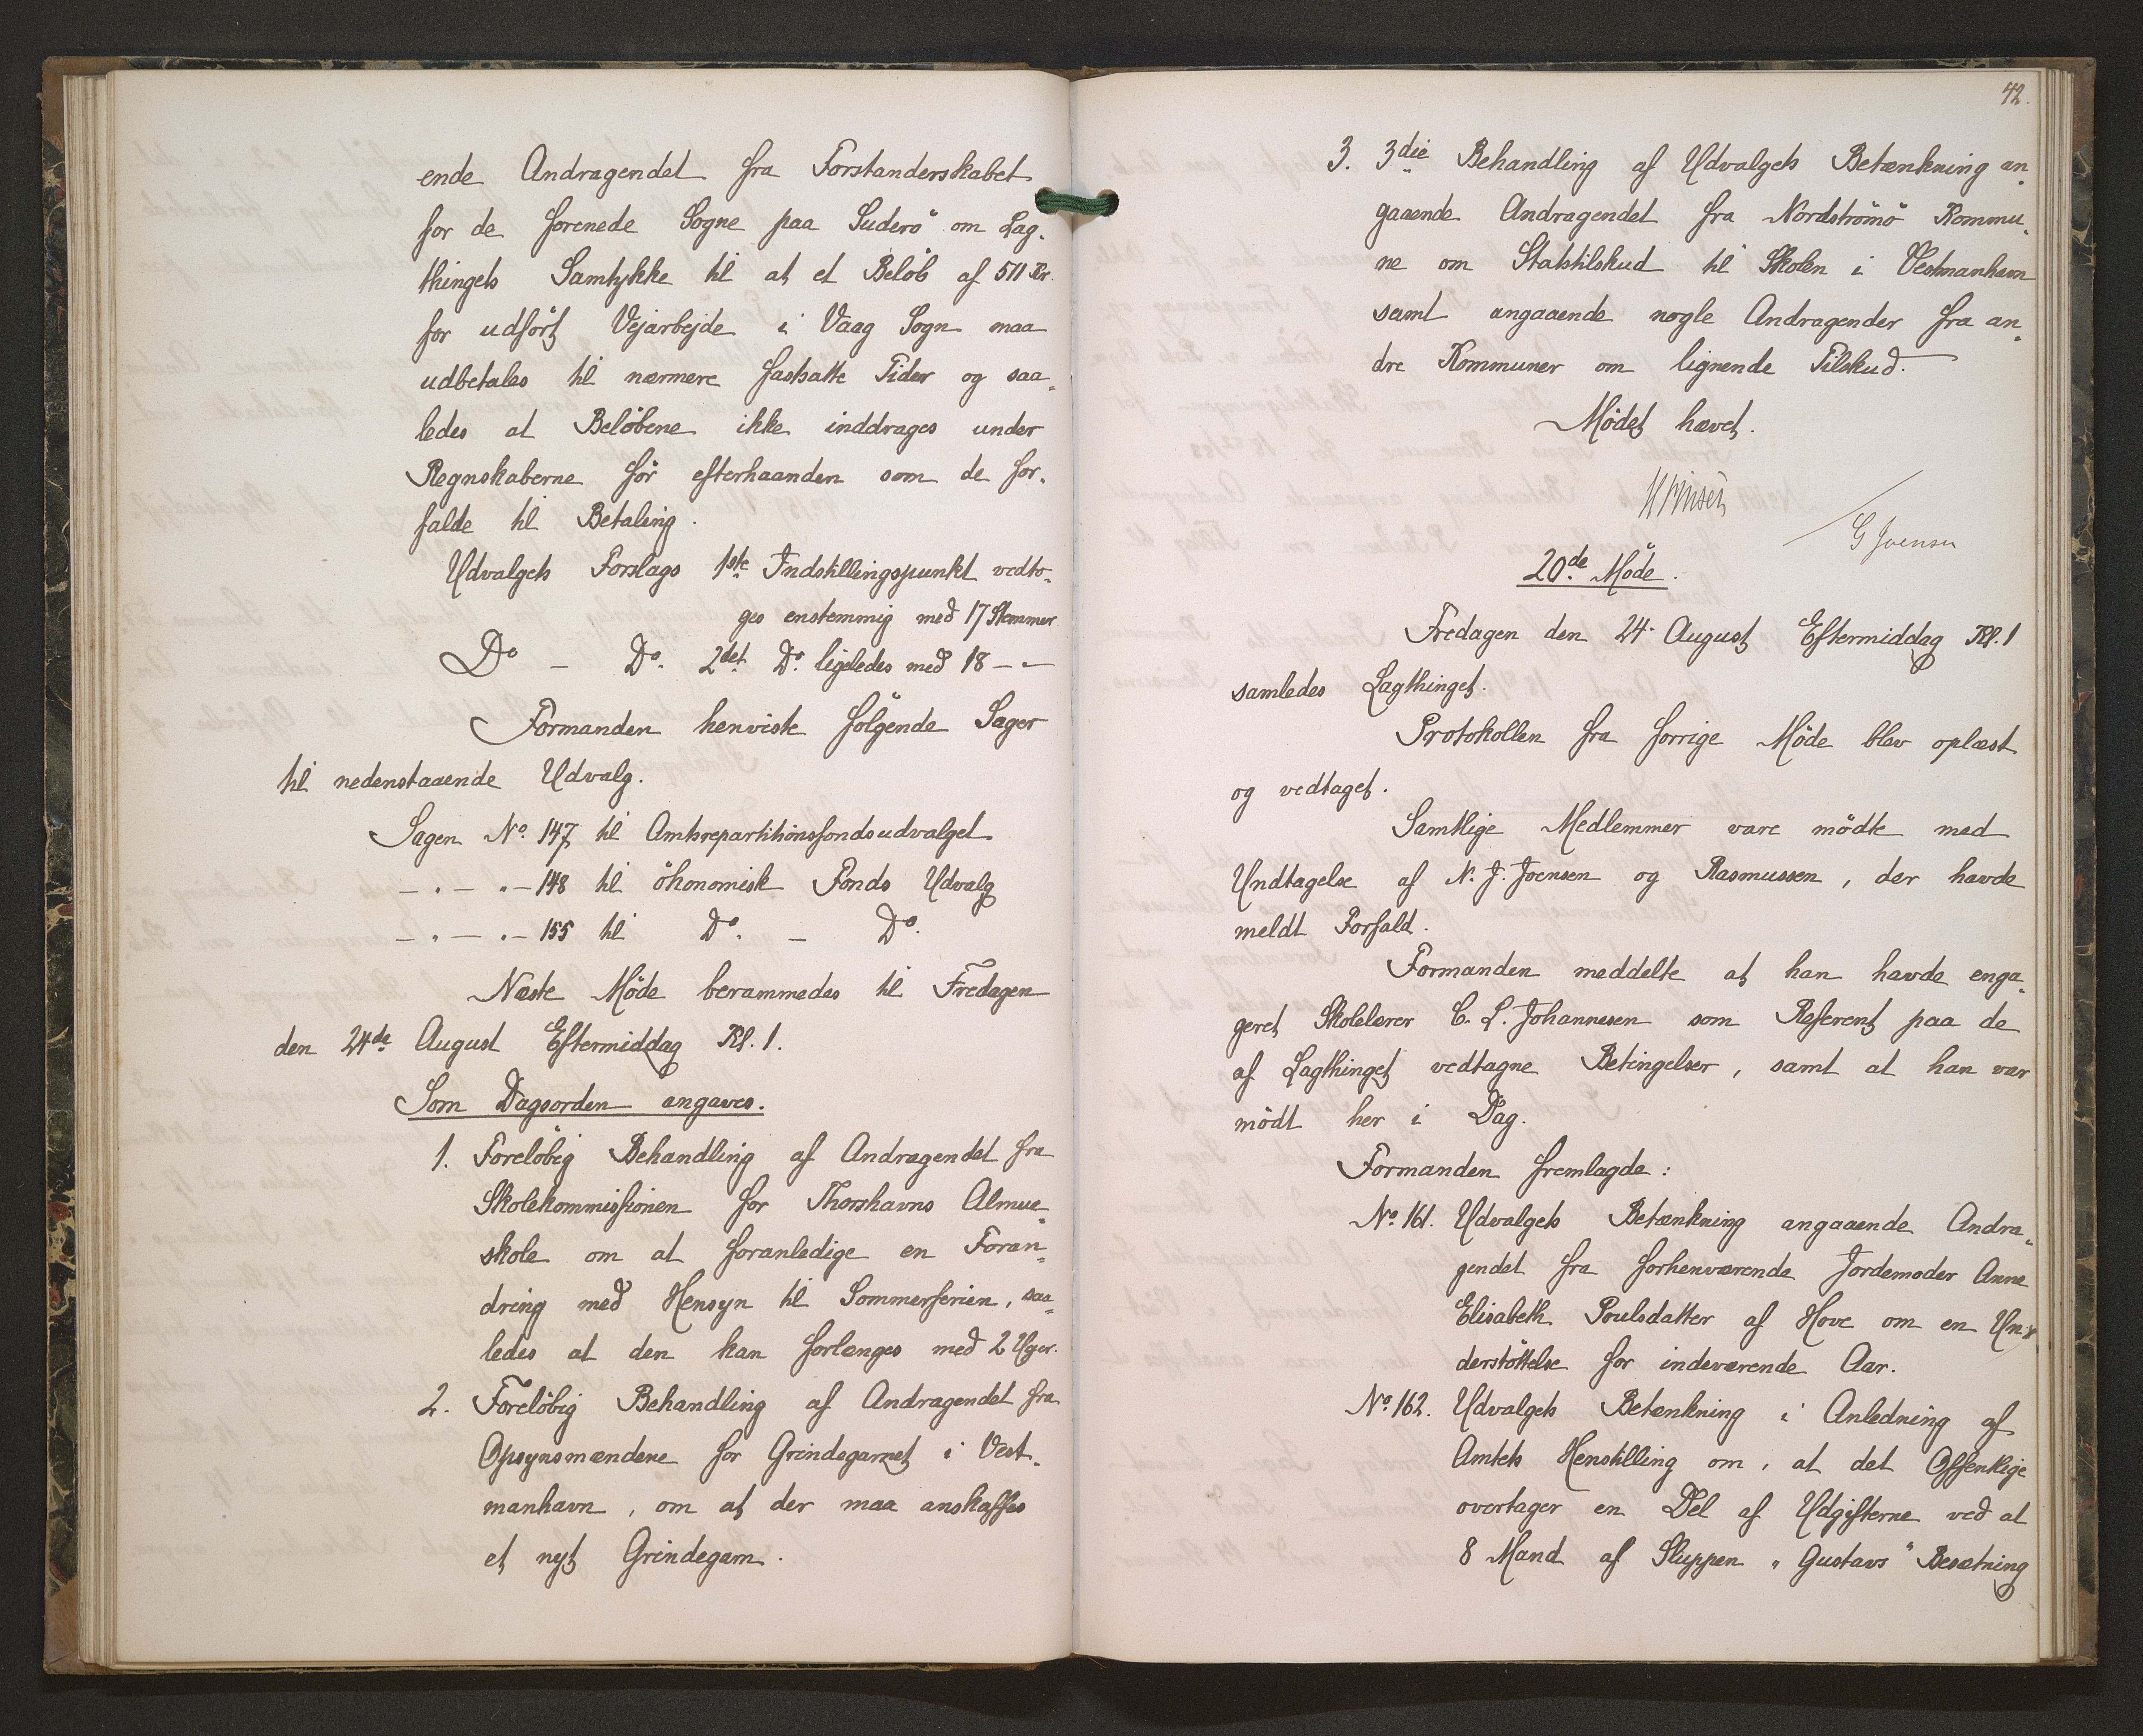 ende Andragendet fra Forstanderskabet
for de forenede Sogne paa Suderö om Lag-
thingets Samtykke til at et Belöb af 511 Kr.
for udfört Vejarbejde i Vaag Sogn maa
udbetales til nærmere fastsatte Tider og saa-
ledes at Belöbene ikke inddrages under
Regnskaberne för efterhaanden som de for-
falde til Betaling.
Udvalgets Forslags 1ste Indstillingspunkt vedto-
ges enstemmig med 17 Stemmer
Do - Do. 2det Do. ligeledes med 18 - -
Formanden henviste fölgende Sager
til nedenstaaende Udvalg.
Sagen No. 147 til Amtsrepartitionsfondsudvalget
- . - . - 148 til ökonomisk Fonds Udvalg
- . - . - 155 til Do. - Do.
Næste Möde berammedes til Fredagen
den 24de August Eftermiddag Kl. 1.
Som Dagsorden angaves.
1. Forelöbig Behandling af Andragendet fra
Skolekommissionen for Thorshavns Almue-
skole om at foranledige en Foran-
dring med Hensyn til Sommerferien, saa-
ledes at den kan forlænges med 2 Uger.
2. Forelöbig Behandling af Andragendet fra
Opsynsmændene for Grindegarnet i Vest-
manhavn, om at der maa anskaffes
et nyt Grindegarn.
42.
3. 3die Behandling af Udvalgets Betænkning an-
gaaende Andragendet fra Nordströmö Kommu-
ne om Statstilskud til Skolen i Vestmanhavn
samt angaaende nogle Andragender fra an-
dre Kommuner om lignende Tilskud.
Mödet hævet.
G Joensen
20de Möde.
Fredagen den 24. August Eftermiddag Kl. 1
samledes Lagthinget.
Protokollen fra forrige Möde blev oplæst
og vedtaget.
Samtlige Medlemmer vare mödte med
Undtagelse af N. J. Joensen og Rasmussen, der havde
meldt Forfald.
Formanden meddelte at han havde enga-
geret Skolelærer C. L. Johannesen som Referent paa de
af Lagthinget vedtagne Betingelser, samt at han var
mödt her i Dag.
Formanden fremlagde:
No. 161. Udvalgets Betænkning angaaende Andra-
gendet fra forhenværende Jordemoder Anne
Elisabeth Poulsdatter af Hove om en Un-
derstöttelse for indeværende Aar.
No. 162. Udvalgets Betænkning i Anledning af
Amtets Henstilling om, at det Offentlige
overtager en Del af Udgifterne ved at
8 Mand af Sluppen "Gustavs" Besætning